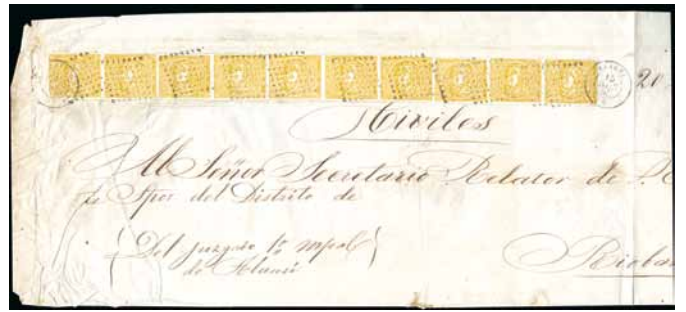 20
Civiles
Al Señor Secretario Relator de
del Distrito de
Del juzgado 1º
de Alausí
Rioba